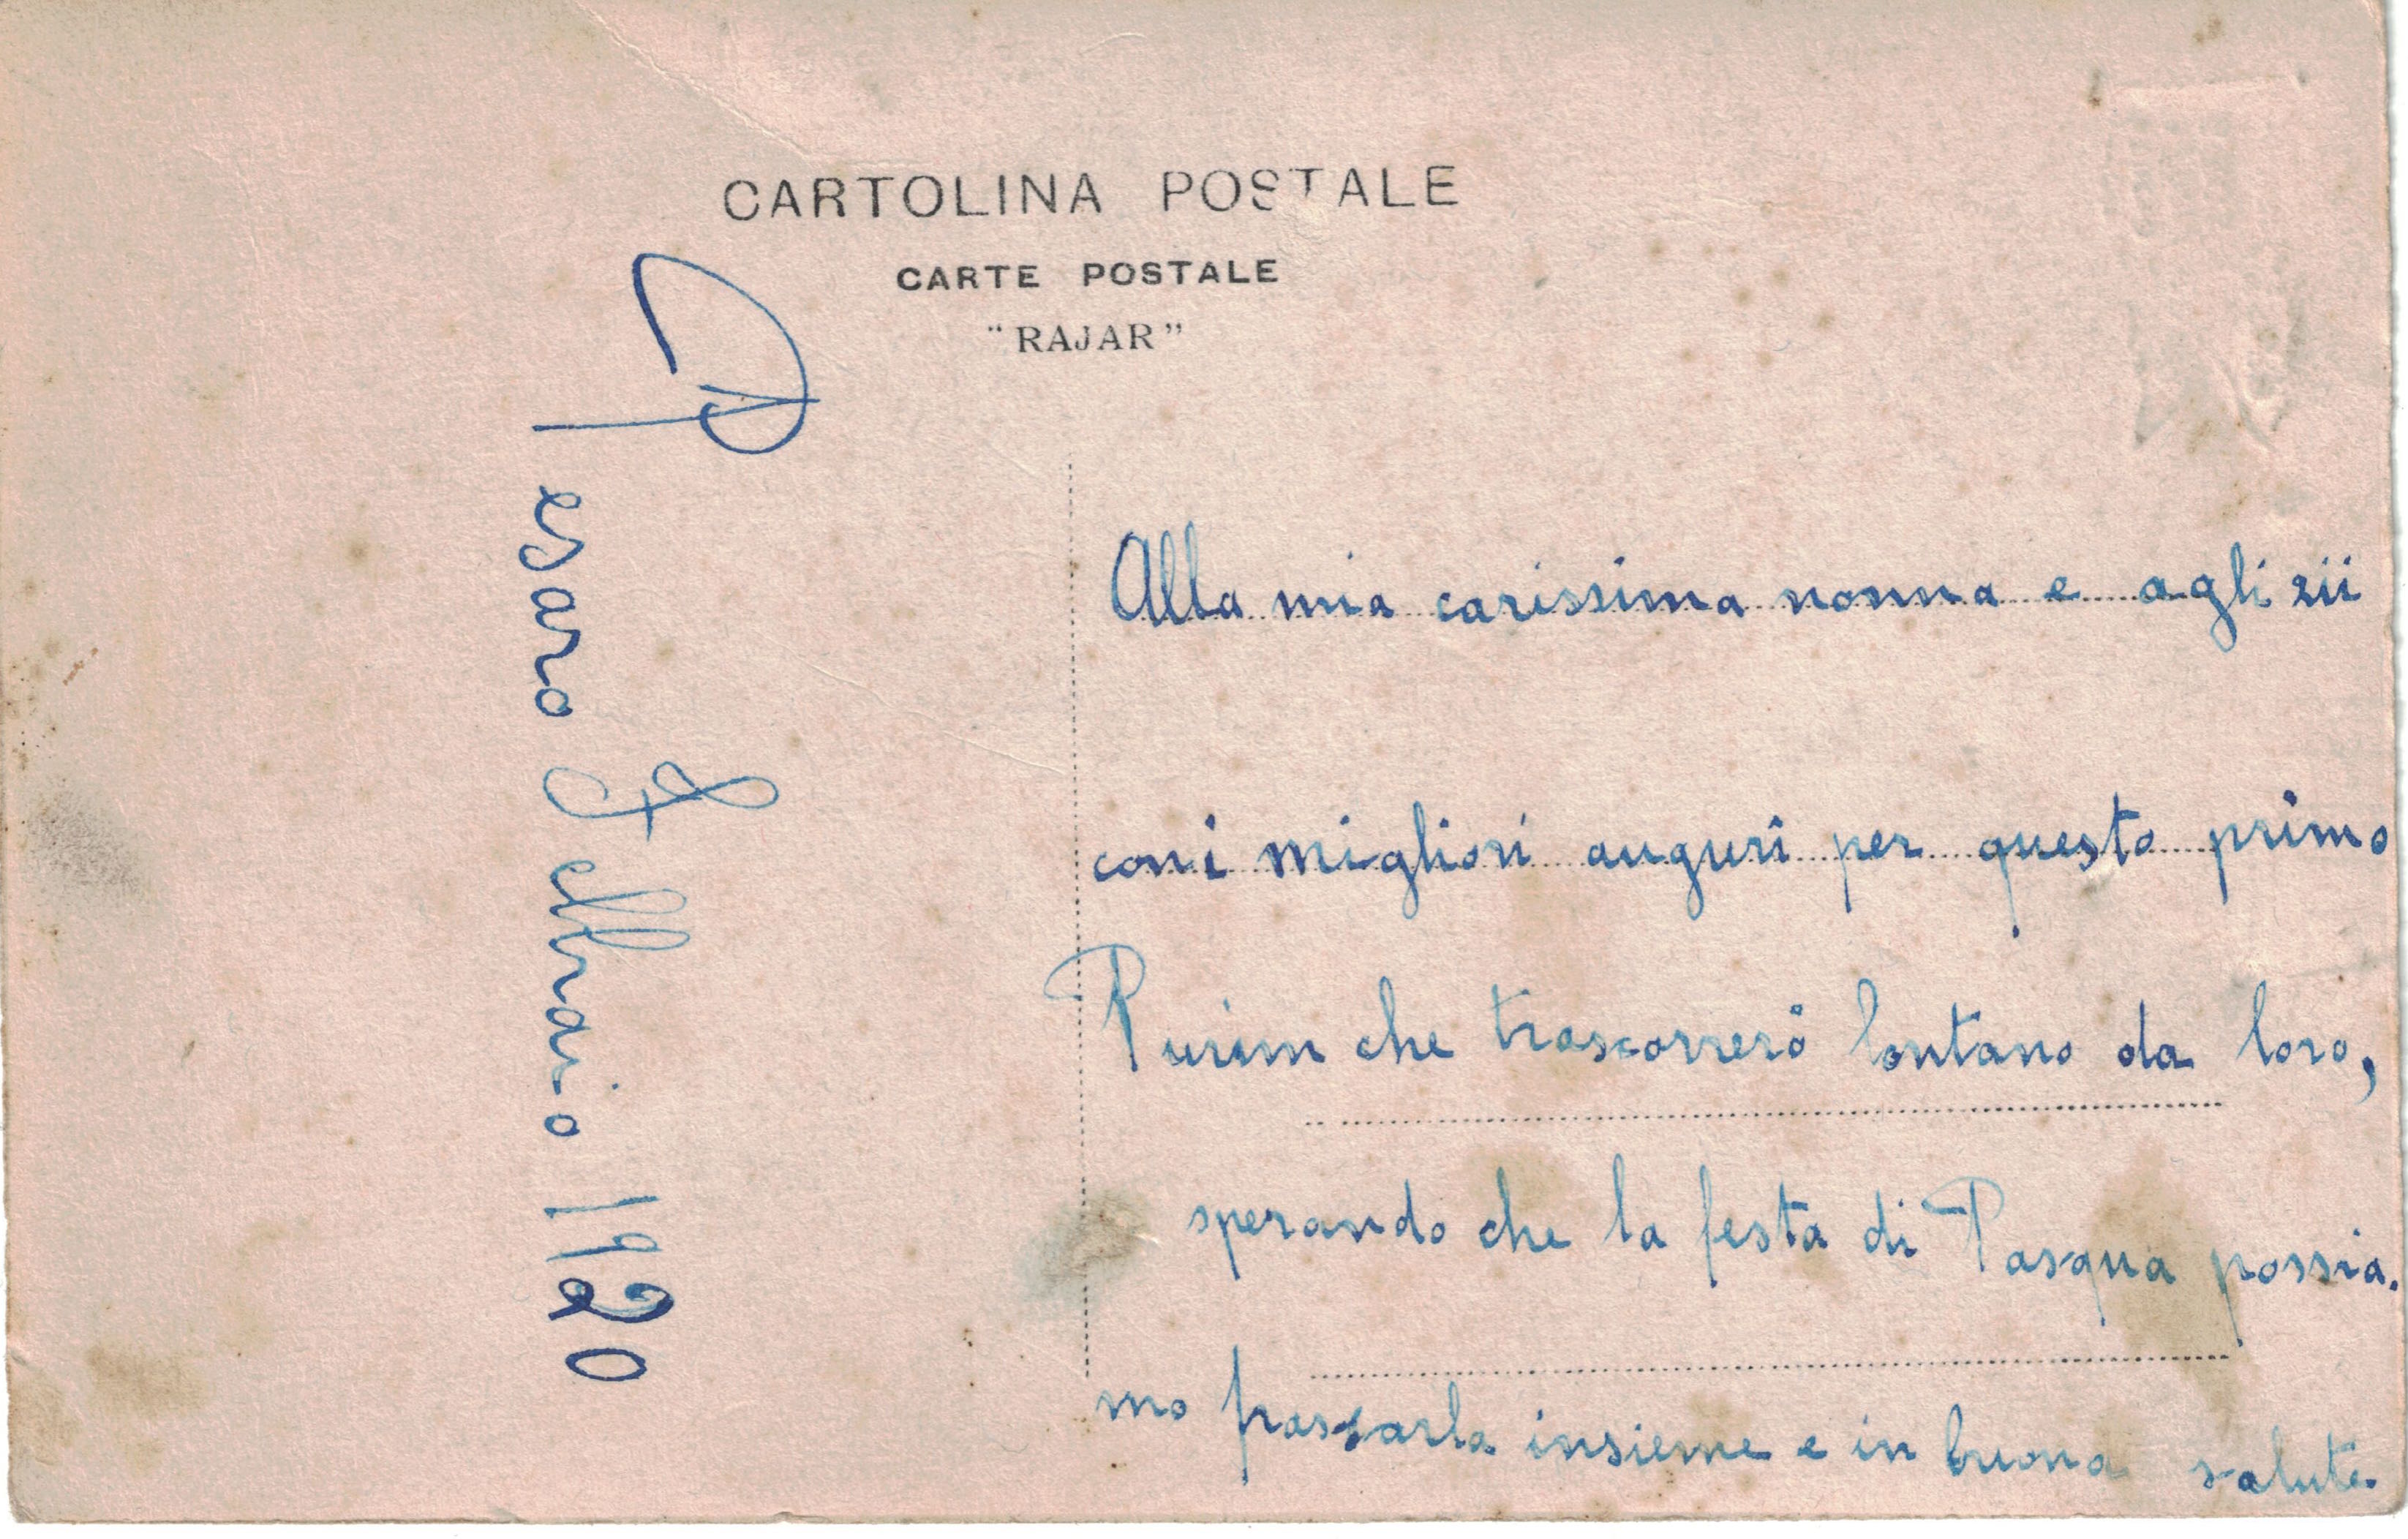 CARTOLINA POSTALE
CARTE POSTALE
"RAJAR"
Pesaro Febbraio 1920
Alla mia carissima nonna e agli zii
con i migliori auguri per questo primo
Purim che trascorrerò lontano da loro,
sperando che la festa di Pasqua possia-
mo passarla insieme e in buona salute